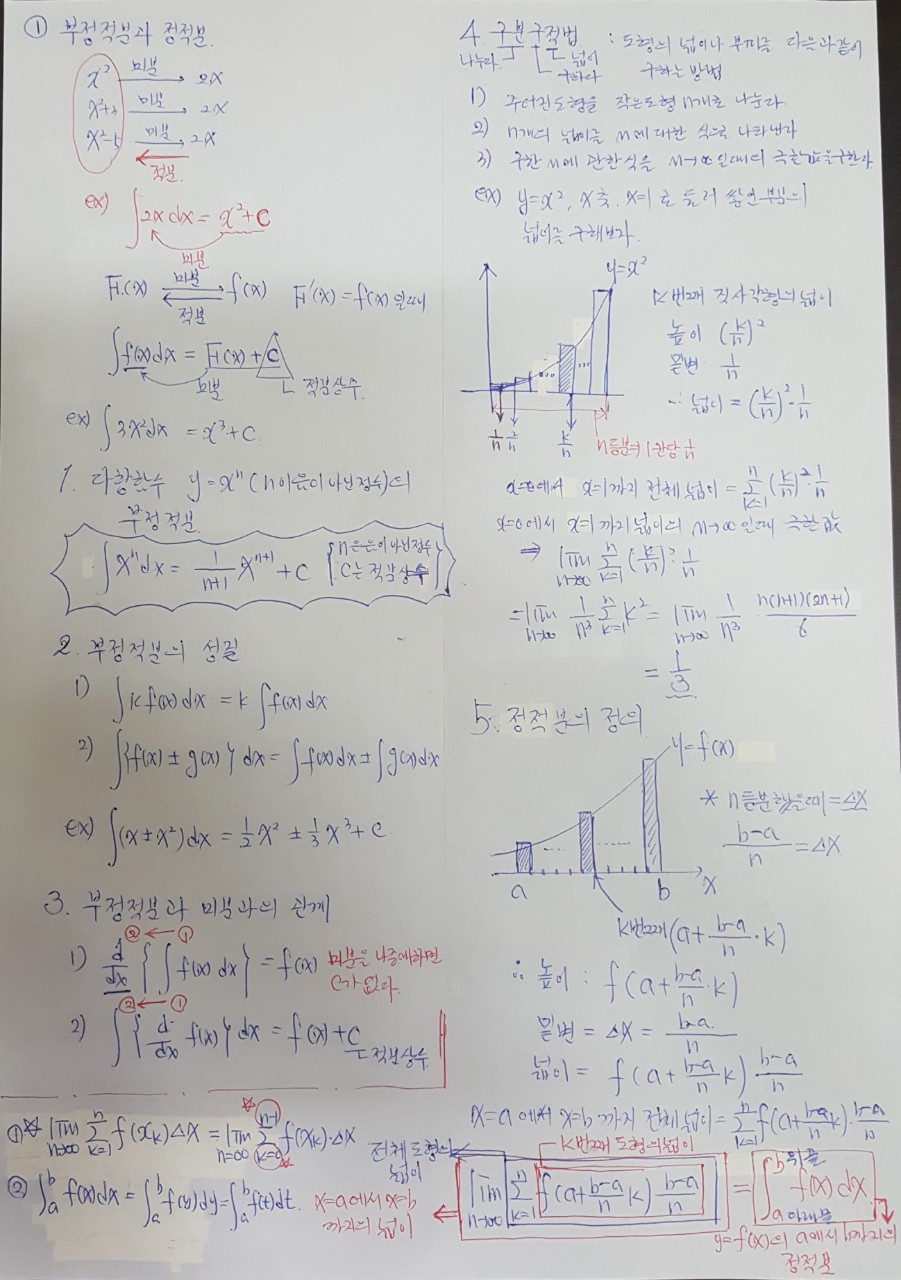 ① 부정적분과 정적분.
x² 미분 → 2x
x²+3 미분 → 2x
x²-5 미분 → 2x
← 적분.
ex) ∫2x dx = x²+C
미분
F(x) 미분 → f(x) F'(x)=f(x)일때
← 적분
∫f(x)dx = F(x)+C
미분 적분상수.
ex) ∫3x²dx = x³+C.
1. 다항함수 y=xⁿ (n이 음이 아닌 정수)의
부정적분.
∫xⁿdx = 1/(n+1) xⁿ⁺¹ + C {n은 음이 아닌정수
C는 적분상수}
2. 부정적분의 성질
1) ∫k f(x) dx = k ∫f(x) dx
2) ∫{f(x) ± g(x)} dx = ∫f(x)dx ± ∫g(x)dx
ex) ∫(x±x²)dx = 1/2 x² ± 1/3 x³ + C
3. 부정적분과 미분과의 관계
② ← ①
1) d/dx {∫f(x) dx} = f(x) 미분을 나중에하면
C가 없다.
② ← ①
2) ∫{d/dx f(x)} dx = f(x) + C
적분상수.
①☆ lim n→∞ Σ k=1 n f(xₖ)Δx = lim n=∞ Σ k=0 n-1 f(xₖ)·Δx
② ∫ₐᵇ f(x)dx = ∫ₐᵇ f(y)dy = ∫ₐᵇ f(t)dt.
4 구분구적법 : 도형의 넓이나 부피를 다음과 같이
나누다. 넓이 구하다 구하는 방법
1) 주어진도형을 작은도형 n개로 나눈다
2) n개의 넓이를 n에 대한 식으로 나타낸다
3) 구한 n에 관한식을 n→∞일때의 극한값을구한다
ex) y=x², x축, x=1로 둘러 쌓인부분의
넓이를 구해보자.
y=x²
k번째 직사각형의 넓이
높이 (k/n)²
밑변 1/n
∴ 넓이 = (k/n)²·1/n
1/n 2/n k/n n등분→1칸당 1/n
x=0에서 x=1까지 전체넓이 = Σ k=1 n (k/n)²·1/n
x=0에서 x=1까지 넓이의 n→∞일때 극한값
⇒ lim n→∞ Σ k=1 n (k/n)²·1/n
= lim n→∞ 1/n³ Σ k=1 n k² = lim n→∞ 1/n³ · n(n+1)(2n+1)/6
= 1/3
5. 정적분의 정의
y=f(x)
* n등분했을때=Δx
(b-a)/n = Δx
a b x
k번째 (a+(b-a)/n·k)
∴ 높이 : f(a+(b-a)/n·k)
밑변 = Δx = (b-a)/n
넓이 = f(a+(b-a)/n k)·(b-a)/n
x=a에서 x=b까지 전체넓이 = Σ k=1 n f(a+(b-a)/n k)·(b-a)/n
k번째 도형의넓이
전체도형의
넓이
lim n→∞ Σ k=1 n f(a+(b-a)/n k)·(b-a)/n = ∫ₐᵇ f(x) dx
위끝
아래끝
x=a에서 x=b
까지의 넓이
y=f(x)의 a에서 b까지의
정적분